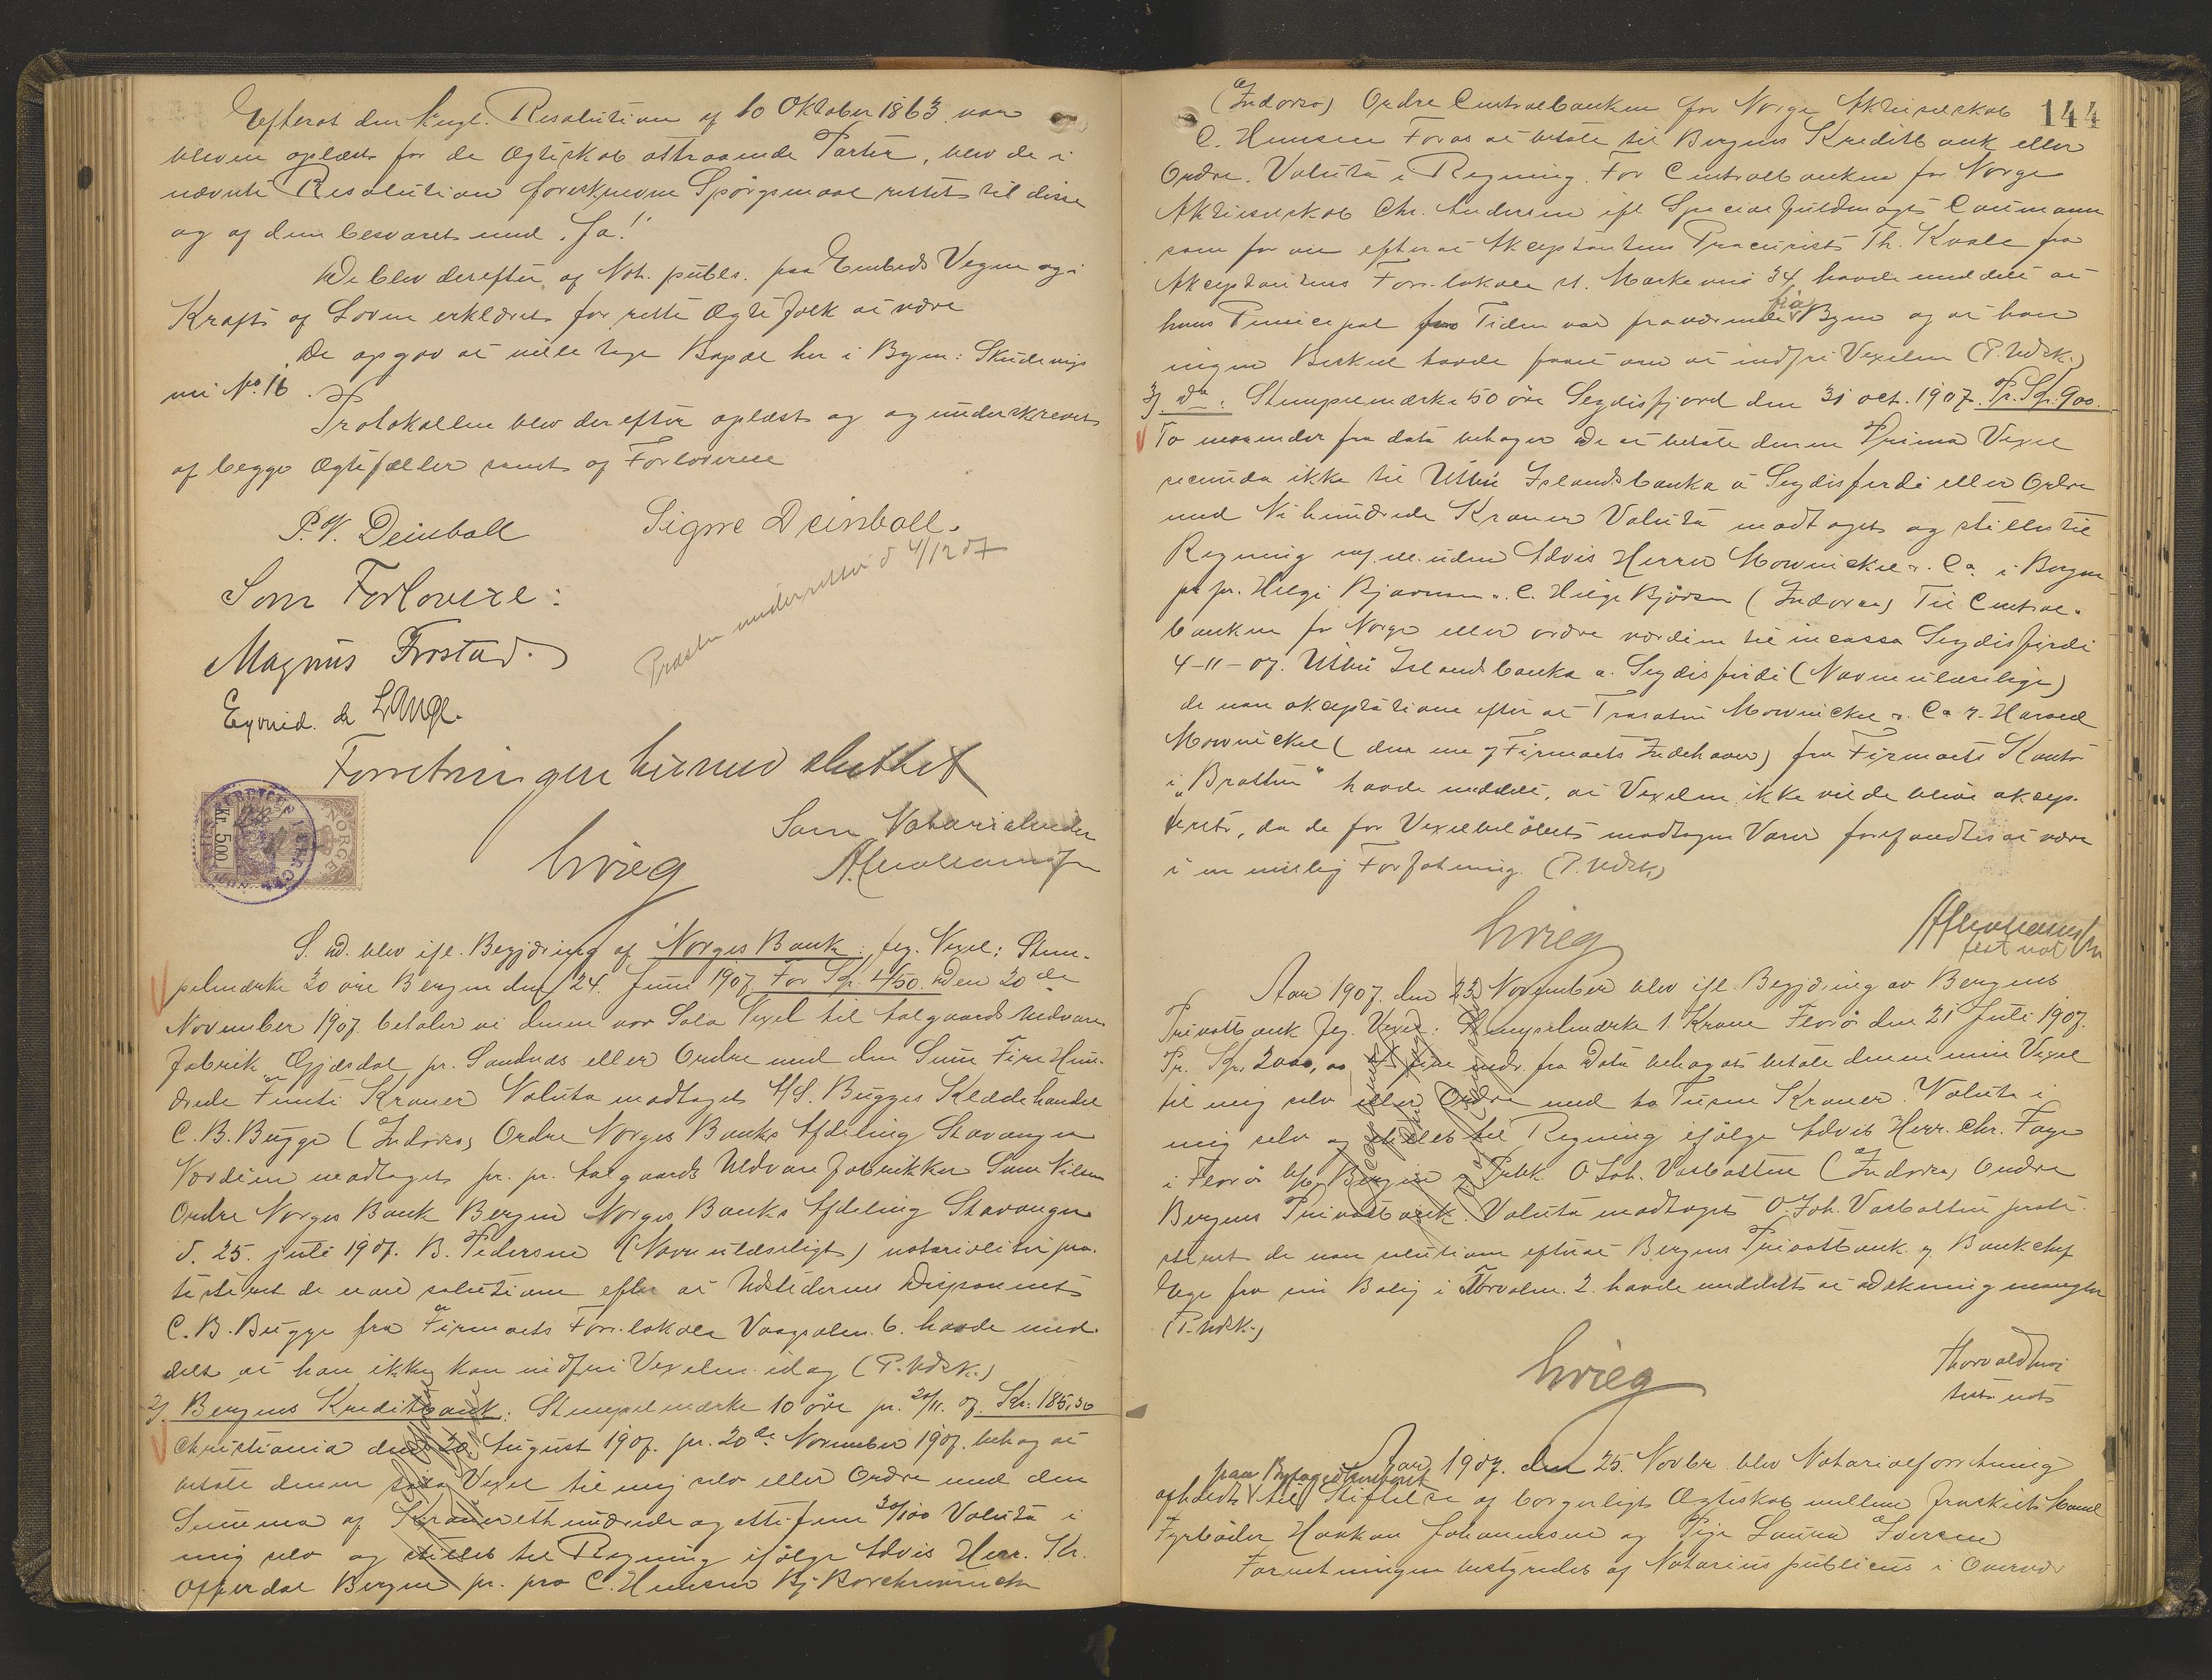 Efterat den kngl. Resolution af 10 Oktober 1863 var
bleven oplæst for de Ægteskab attraaende Parter, blev de i
nævnte Resolution foreskrevne Spörgsmaal rettet til disse
og af dem besvaret med „Ja!"
De blev derefter af Not. publ. paa Embeds Vegne og i
Kraft af Loven erklæret for rette Ægtefolk at være
De opgav at ville tage Bopæl her i Byen: Skudevigs
vei No. 16.
Protokollen blev derefter oplæst og og underskrevet
af begge Ægtefæller samt af Forloverne
P. V. Deinboll Signe Deinboll.
Presten underrettet d 4/12 07
Som Forlovere:
Magnus Frostad.
Eyvind de Lange.
Forretningen hermed sluttet
Som Notarialvidne
Grieg
NORGE
kr. 5.00
S. D. blev ifl. Begjæring af Norges Bank flg. Vexel: Stem-
pelmærke 30 öre Bergen den 24. Juni 1907. For Kr. 450. Den 20de
November 1907 betaler vi denne vor Sola Vexel til Aalgaards Uldvare
fabrik Gjæsdal pr. Sandnæs eller Ordre med den Sum Fire Hun-
drede Femti Kroner Valuta modtaget A/S. Bugges Klædehandel
C. B. Bugge (Indorso) Ordre Norges Banks Afdeling Stavanger
Værdien modtaget pr. pr. Aalgaards Uldvarefabrikker Sum Nilsen
Ordre Norges Bank Bergen Norges Banks Afdeling Stavanger
d. 25. juli 1907. B. Pedersen (Navn ulæseligt) notarialiter pro-
testeret de non solutione efter at Udstedernes Disponent
C. B. Bugge fra Firmaets Forr.lokale Vaagsalm. 6. havde med-
delt at han ikke kan indfri Vexelen idag (P. Udsk.)
2) Bergens Kreditbank: Stempelmærke 10 öre pr. 20/11. 07. Kr. 185,30
Christiania den 20. August 1907. pr. 20de November 1907. behag at
betale denne sola Vexel til mig selv eller Ordre med den
Summa af Kroner ethundrede og otti fem 30/100 Valuta i
mig selv og stilles til Regning ifölge Advis Herr. Kr.
Offerdal Bergen pr. pro C. Hennsen Kj. Borchrevinck
144
(Indorso) Ordre Centralbanken for Norge Aktieselskab
C. Hennsen For os at betale til Bergens Kreditbank eller
Ordre. Valuta i Regning. For Centralbanken for Norge
Aktieselskab Chr. Andersen ifl Specialfuldmagt Caumann
som for vie efter at Akceptantens Procurist Th. Kvale fra
Akceptantens Forr.lokale st. Markevei 34, havde meddelt at
hans Principal for Tiden var fraværende fra Byen og at han
ingen Besked havde faaet om at indfri Vexelen (P. Udsk.)
3) Do: Stempelmærke 50 öre Seydisfjord den 31 oct. 1907. Pr. Kr. 900.
To maaneder fra dato behager De at betale denne Prima Vexel
secunda ikke til Utbú Islandsbanka á Seydisfirdi eller Ordre
med Nihundrede Kroner Valuta modtaget og stilles til
Regning uden Advis Herrer Mowinckel & Co i Bergen
pr pr. Helgi Bjarnsen C. Helge Björsen (Indorso) Til Central-
banken for Norge eller ordre værdien til incasso Seydisfirdi
4-11-07. Utbú Islandsbanka a. Seydisfirdi (Navn ulæselige)
de non akceptatione efter at Trasaten Mowinckel & Co v. Harald
Mowinckel (den ene af Firmaets Indehaver) fra Firmaets Kontor
i „Bratten" havde meddelt, at Vexelen ikke vilde blive aksep-
teret, da de for Vexelbelöbets modtagne Varer forefandtes at være
i en mislig Forfatning. (P. Udsk.)
Grieg
test not
Aar 1907. den 23 November blev ifl. Begjæring av Bergens
Privatbank flg. Vexel: Stempelmærke 1. Krone Florö den 21 Juli 1907.
Pr. Kr. 2000,00 4 fire mdr. fra Dato behag at betale denne min Vexel
til mig selv eller Ordre med to Tusen Kroner. Valuta i
mig selv og stilles til Regning ifölge Advis Herr. Chr. Faye
i Florö O. Joh. Vasbotten (Indorso) Ordre
Bergens Privatbank. Valuta modtaget O. Joh. Vasbotten prote-
steret de non solutione efter at Bergens Privatbank v. Bankchef
fra sin Bolig i Torvalm. 2. havde meddelt at dækning mangler
(P. Udsk.)
Grieg
test not
Aar 1907. den 25. Novbr blev Notarialforretning
paa Byfogedkontoret
afholdt til Stiftelse af borgerligt Ægteskab mellem fraskilt Mand
Fyrböder Haakon Johannesen og Pige Laura Iversen
Forretningen bestyredes af Notarius publicus i Overvær